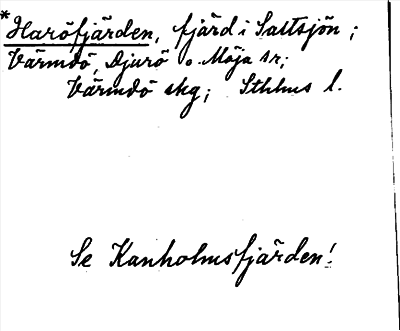 *Haröfjärden, fjärd i Saltsjön;
Värmdö, Djurö o. Möja sr;
Värmdö skg; Sthlms l.
Se Kanholmsfjärden!